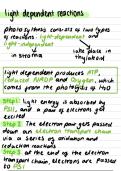 light dependent reactions
photosynthesis consists of two types
of reactions: light-dependent and
light-independent
in stroma
take place in
thylakoid
light dependent produces ATP,
reduced NADP and Oxygen, which
comes from the photolysis of H₂O
Step 1 Light energy is absorbed by
PSII, and a pair of electrons get
excited
Step 2 The electron pair gets passed
down an electron transport chain
in a series of oxidation and
reduction reactions
Step 3 At the end of the electron
transport chain, electrons are passed
to PSI